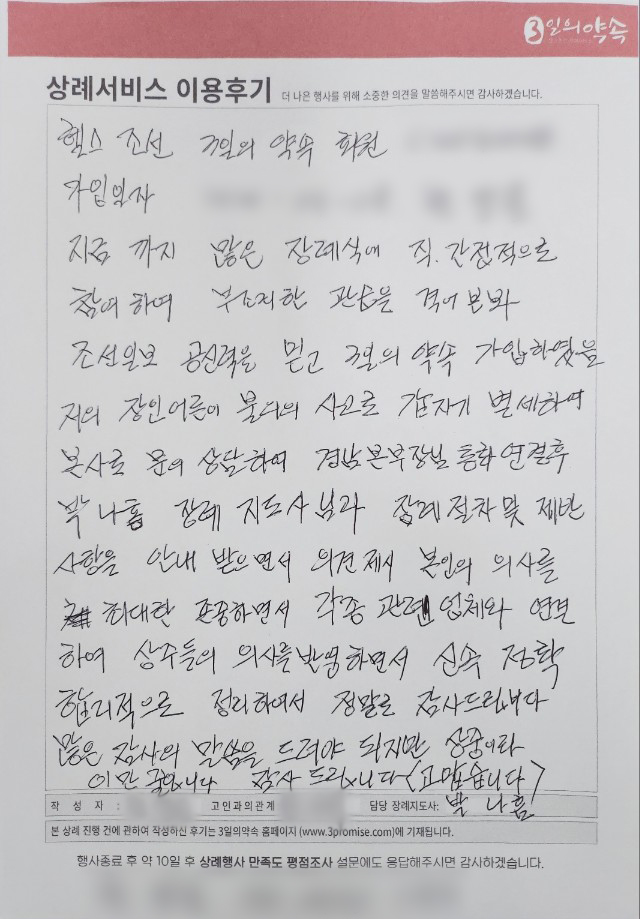 3일의약속
상례서비스 이용후기 더 나은 행사를 위해 소중한 의견을 말씀해주시면 감사하겠습니다.
헬스 조선 3일의 약속 회원
가입일자
지금 까지 많은 장례식에 직.간접적으로
참여하여 부조리한 관습을 격어 본바
조선일보 공신력을 믿고 3일의 약속 가입하였음
저의 장인어른이 불의의 사고로 갑자기 별세하여
본사로 문의 상담하여 경남본부장님 통화 연결후
박나흠 장례 지도사님과 장례절차 및 제반
사항을 안내 받으면서 의견제시 본인의 의사를
최대한 존중하면서 각종 관련 업체와 연결
하여 상주들의 의사를 반영하면서 신속 정확
합리적으로 정리하여서 정말로 감사드립니다
많은 감사의 말씀을 드려야 되지만 상중이라
이만 줄입니다 감사 드립니다(고맙습니다)
작 성 자 : 고인과의관계 담당 장례지도사: 박 나흠
본 상례 진행 건에 관하여 작성하신 후기는 3일의약속 홈페이지 (www.3promise.com)에 기재됩니다.
행사종료 후 약 10일 후 상례행사 만족도 평점조사 설문에도 응답해주시면 감사하겠습니다.